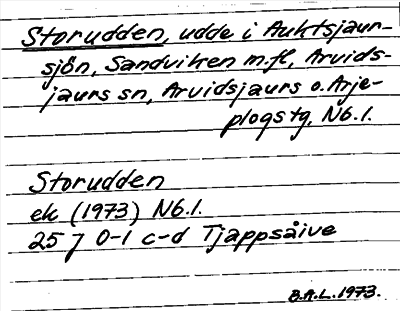 Storudden, udde i Auktsjaur-
sjön, Sandviken m.fl, Arvids-
jaurs sn, Arvidsjaurs o. Arje-
plogs tg, Nb.l.
Storudden
ek (1973) Nb.l.
25 J 0-1 c-d Tjappsåive
B.A.L. 1973.